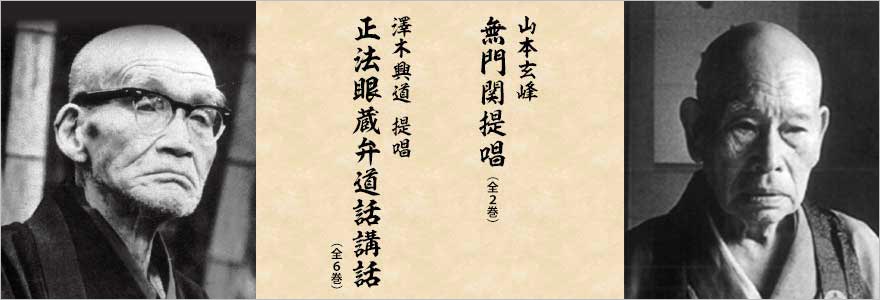 山本玄峰
無門関提唱(全2巻)
澤木興道 提唱
正法眼蔵弁道話講話
(全6巻)